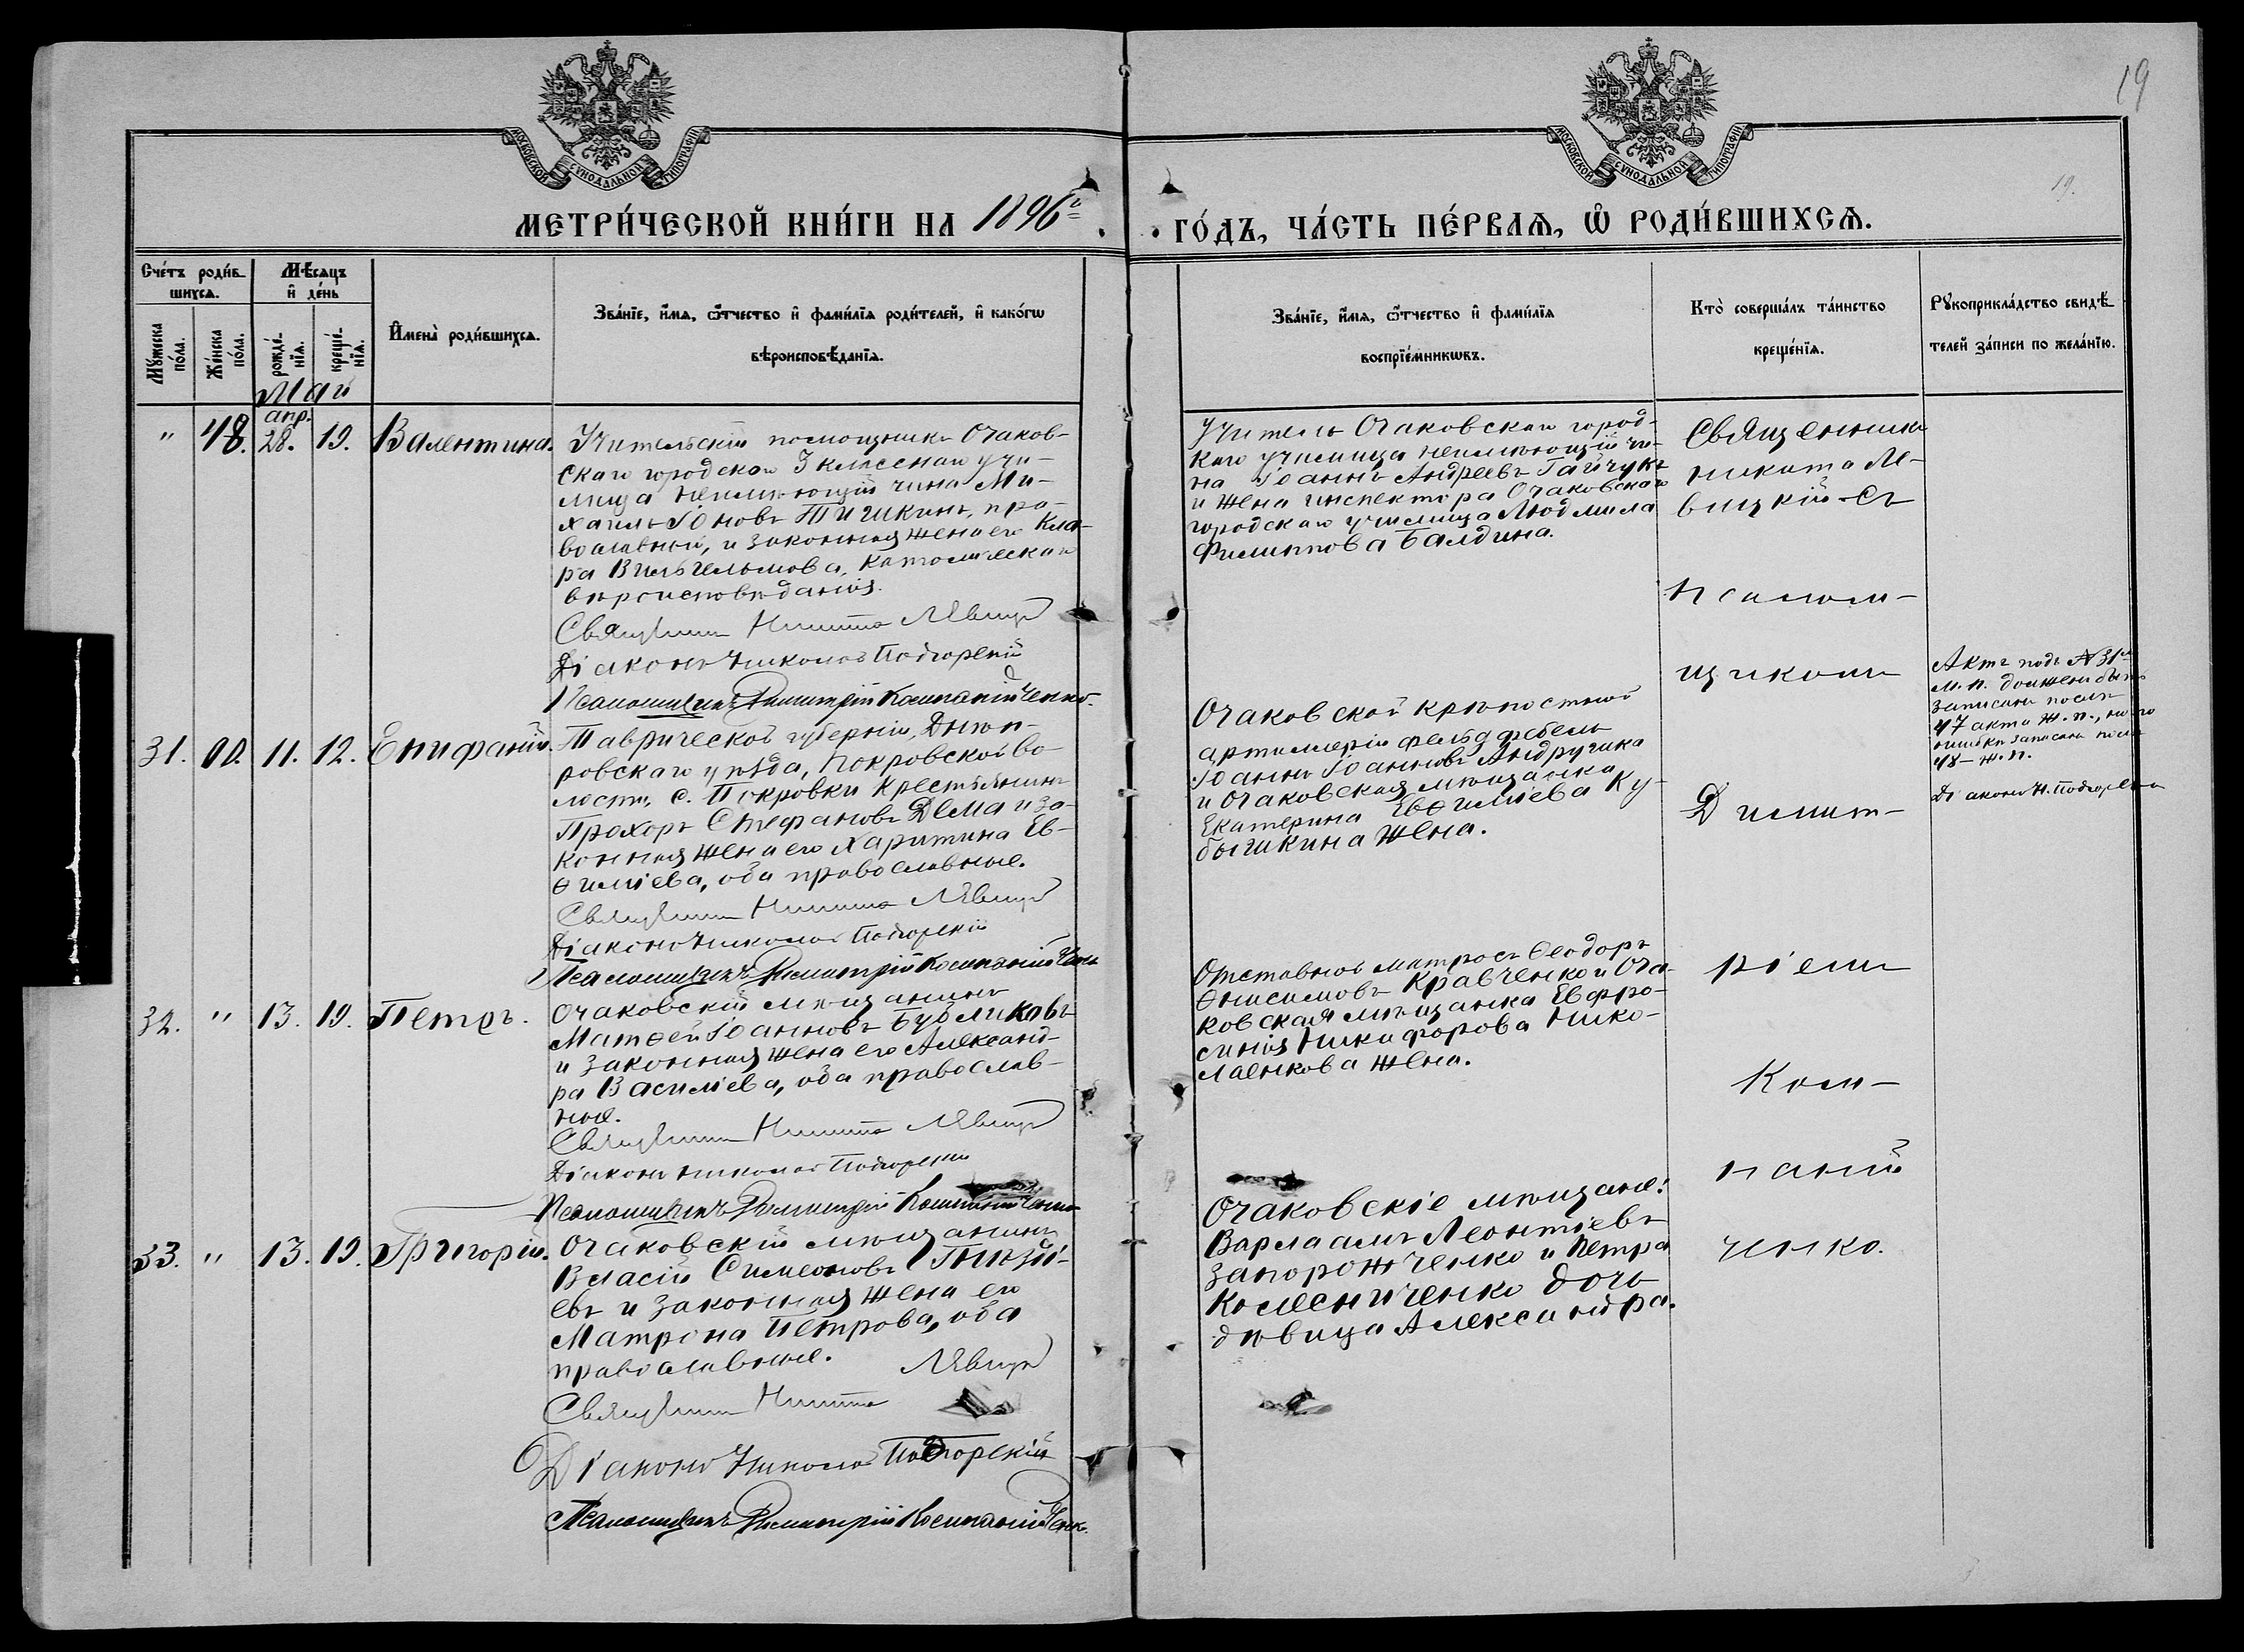 19
МОСКОВСКОЙ СѴНОДАЛЬНОЙ ТИПОГРАФІИ
МОСКОВСКОЙ СѴНОДАЛЬНОЙ ТИПОГРАФІИ
19.
МЕТРИ́ЧЕСКОЙ КНИ́ГИ НА 1896 г.
ГО́ДЪ, ЧА́СТЬ ПЕ́РВАѦ, Ѡ҆ РОДИ́ВШИХСѦ.
Сче́тъ роди́в-
шихсѧ.
Мꙋжеска по́ла.
Же́нска по́ла.
Мѣ́сѧцъ
и҆ де́нь
рожде́-
нїѧ.
креще́-
нїѧ.
Май
И҆мена̀ роди́вшихсѧ.
Зва́нїе, и҆́мѧ, ѻ҆́тчество и҆ фами́лїѧ роди́телей, и҆ како́гѡ
вѣроисповѣ́данїѧ.
Зва́нїе, и҆́мѧ, ѻ҆́тчество и҆ фами́лїѧ
воспрїе́мникѡвъ.
Кто̀ соверша́лъ та́инство
креще́нїѧ.
Рꙋкоприкла́дство свидѣ́-
телей за́писи по жела́нїю.
" 48. апр. 28. 19. Валентина.
Учительскій помощникъ Очаков-
скаго городскаго 3 класснаго учи-
лища неимѣющій чина Ми-
хаилъ Іоновъ Тишкинъ, пра-
вославный, и законная жена его Кла-
ра Вильгельмова, Католическаго
вѣроисповѣданія.
Священникъ Никита Левицкій
Діаконъ Николай Подгорскій
Псаломщикъ Димитрій Компанійченко.
Учитель Очаковскаго город-
скаго училища неимѣющій чи-
на Іоаннъ Андреевъ Гайчукъ
и жена инспектора Очаковскаго
городскаго училища Людмила
Филиппова Балдина.
Священникъ
Никита Ле-
вицкій съ
псалом-
щикомъ
Димит-
ріемъ
Ком-
паній-
ченко.
31. 11. 12. Епифаній.
Таврической губерніи, Днѣп-
ровскаго уѣзда, Покровской во-
лости, с. Покровки крестьянинъ
Прохоръ Стефановъ Дема и за-
конная жена его Харитина Ев-
ѳиміева, оба православные.
Священникъ Никита Левицкій
Діаконъ Николай Подгорскій
Псаломщикъ Димитрій Компанійченко
Очаковской крѣпостной
артиллеріи фельдфебель
Іоаннъ Іоанновъ Андрущка
и Очаковская мѣщанка
Екатерина Евѳиміева Ку-
бышкина жена.
Актъ подъ № 31
м. п. долженъ быть
записанъ послѣ
47 акта ж. п., но по
ошибкѣ записанъ послѣ
48 – ж. п.
Діаконъ Н. Подгорскій
32. " 13. 19. Петръ.
Очаковскій мѣщанинъ
Матѳей Іоанновъ Бурликовъ
и законная жена его Александ-
ра Васильева, оба православ-
ные.
Священникъ Никита Левицкій
Діаконъ Николай Подгорскій
Псаломщикъ Димитрій Компанійченко
Отставной матросъ Ѳеодоръ
Онисимовъ Кравченко и Оча-
ковская мѣщанка Евфро-
синія Никифорова Нико-
лаенкова жена.
33. " 13. 19. Григорій.
Очаковскій мѣщанинъ
Власій Симеоновъ
евъ и законная жена его
Матрона Петрова, оба
православные.
Священникъ Никита Левицкій
Діаконъ Николай Подгорскій
Псаломщикъ Димитрій Компанійченко.
Очаковскіе мѣщане:
Варлаамъ Леонтіевъ
Запорожченко и Петра
Колесниченко дочь
дѣвица Александра.